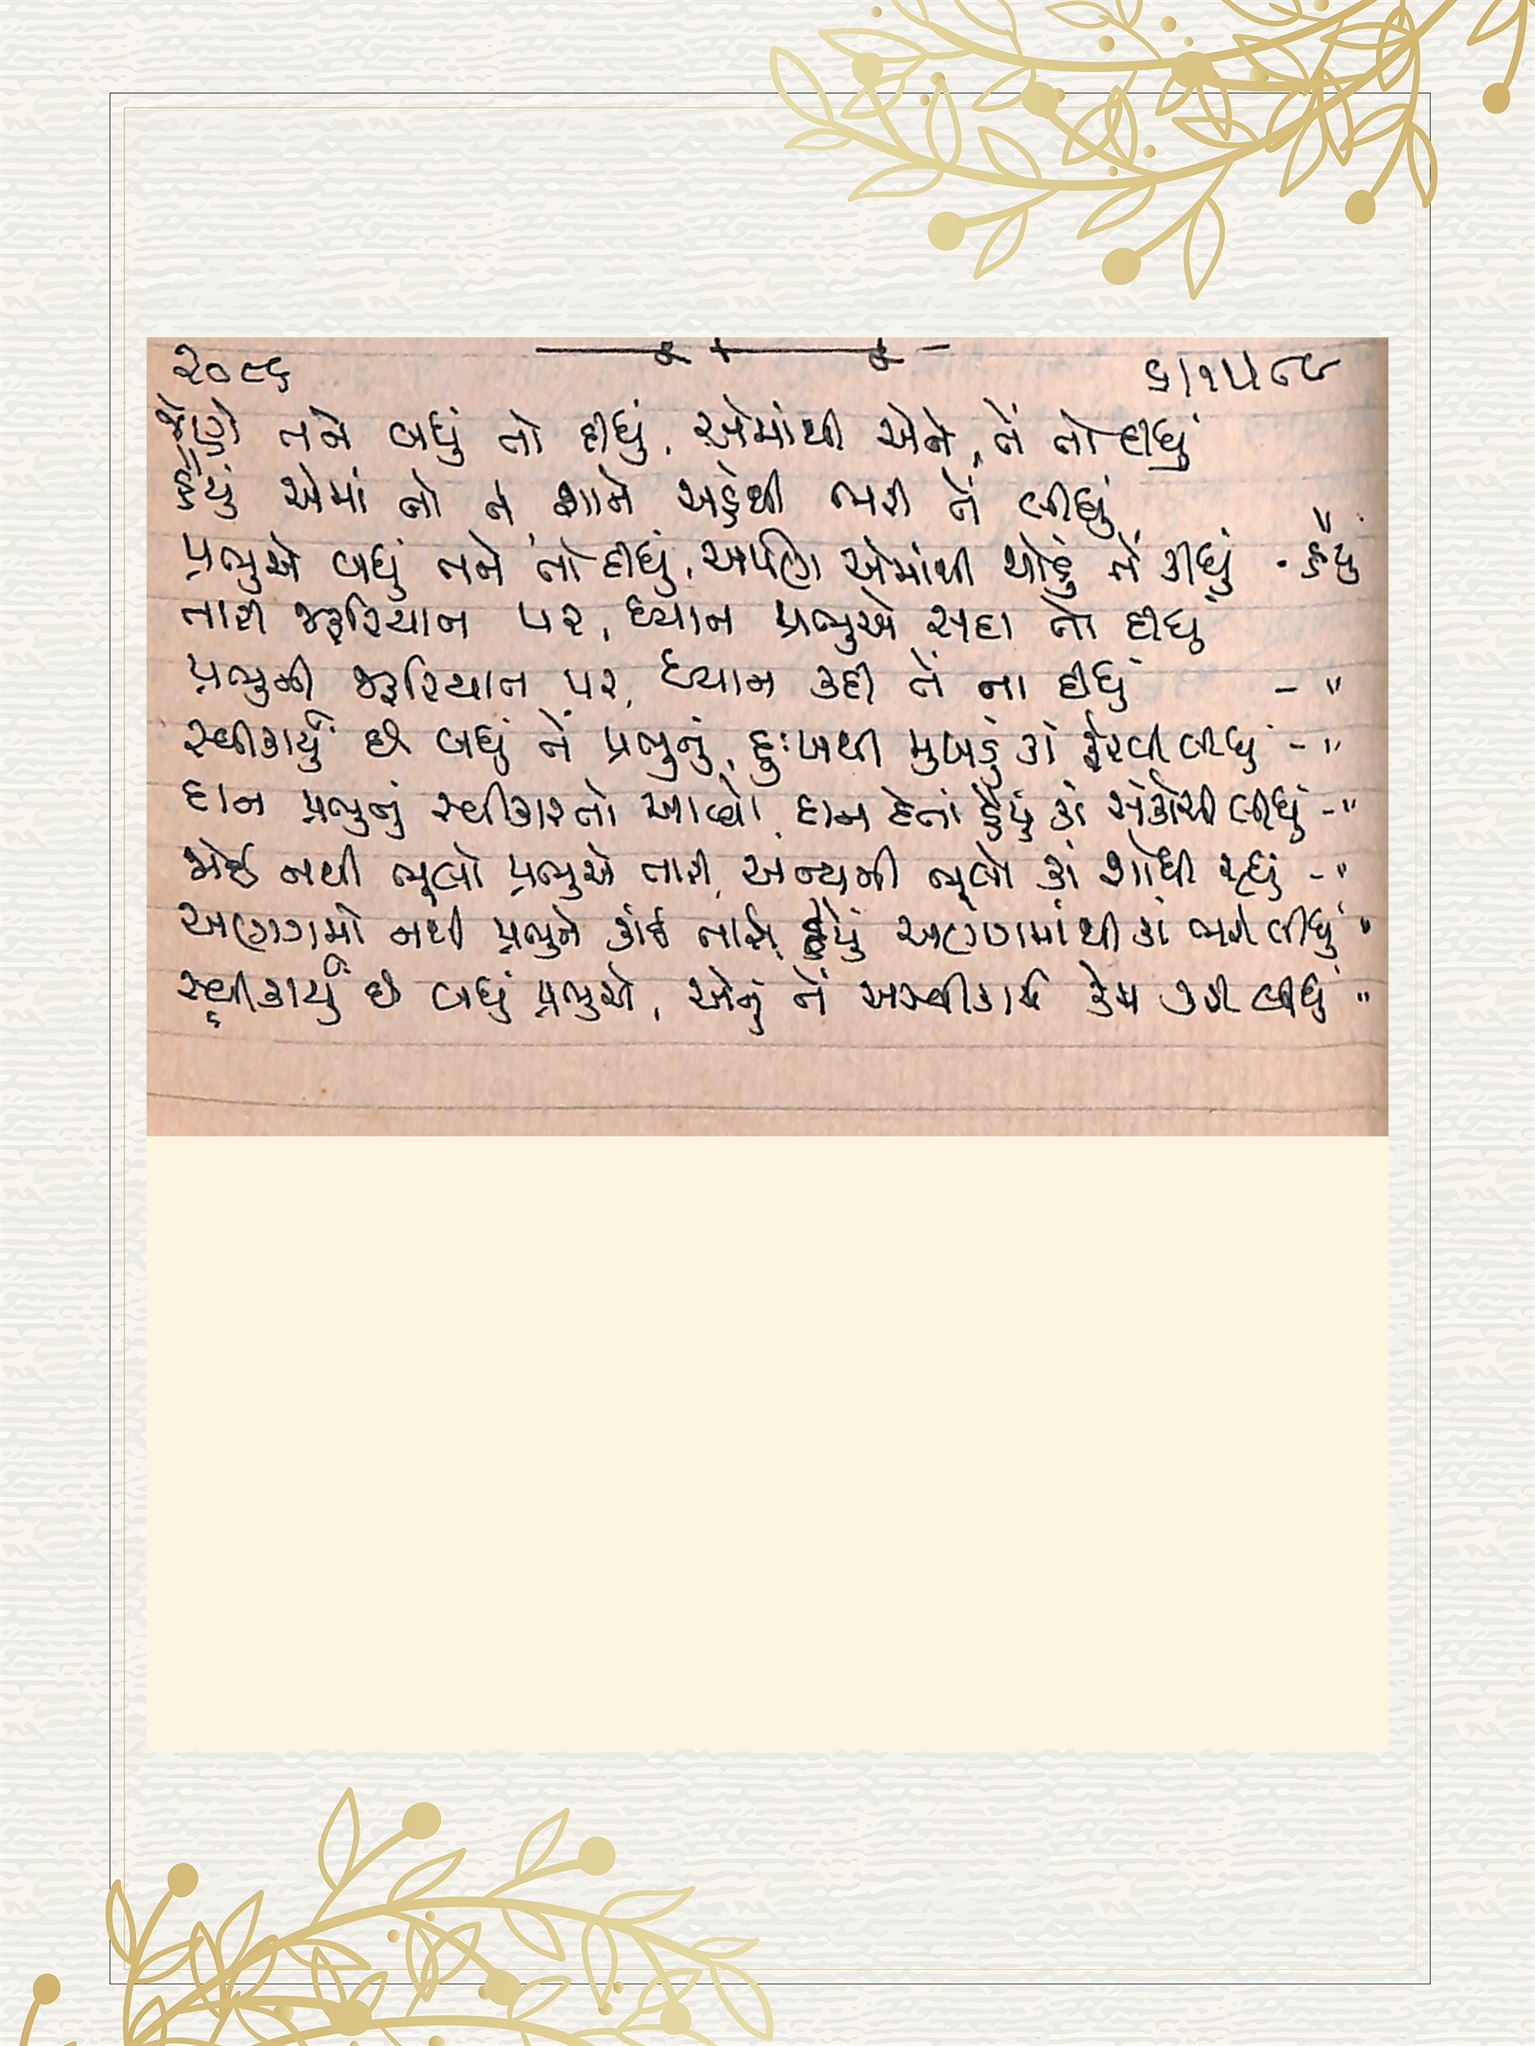 ૨૦૯૬ ૬/૧૫/૮૯
જેણે તને બધું તો દીધું, એમાંથી એને, તેં તો દીધું
હૈયું એમાં તો તે શાને અહંથી ભરી તેં લીધું
પ્રભુએ બધું તને તો દીધું, અર્પણ એમાંથી થોડું તેં કીધું - હૈયું "
તારી જરૂરિયાત પર, ધ્યાન પ્રભુએ સદા તો દીધું
પ્રભુની જરૂરિયાત પર, ધ્યાન કદી તેં ના દીધું - "
સ્વીકાર્યું છે બધું તેં પ્રભુનું, દુઃખથી મુખડું કાં ફેરવી લીધું - "
દાન પ્રભુનું સ્વીકારતો આવ્યો, દાન દેતાં હૈયું કાં સંકોચી લીધું - "
જોઈ નથી ભૂલો પ્રભુએ તારી, અન્યની ભૂલો કાં શોધી રહ્યું - "
અણગમો નથી પ્રભુને કાંઈ તારો, હૈયું અણગમાંથી કાં ભરી લીધું "
સ્વીકાર્યું છે બધું પ્રભુએ, એનું તેં અસ્વીકાર્ય કેમ કરી લીધું "